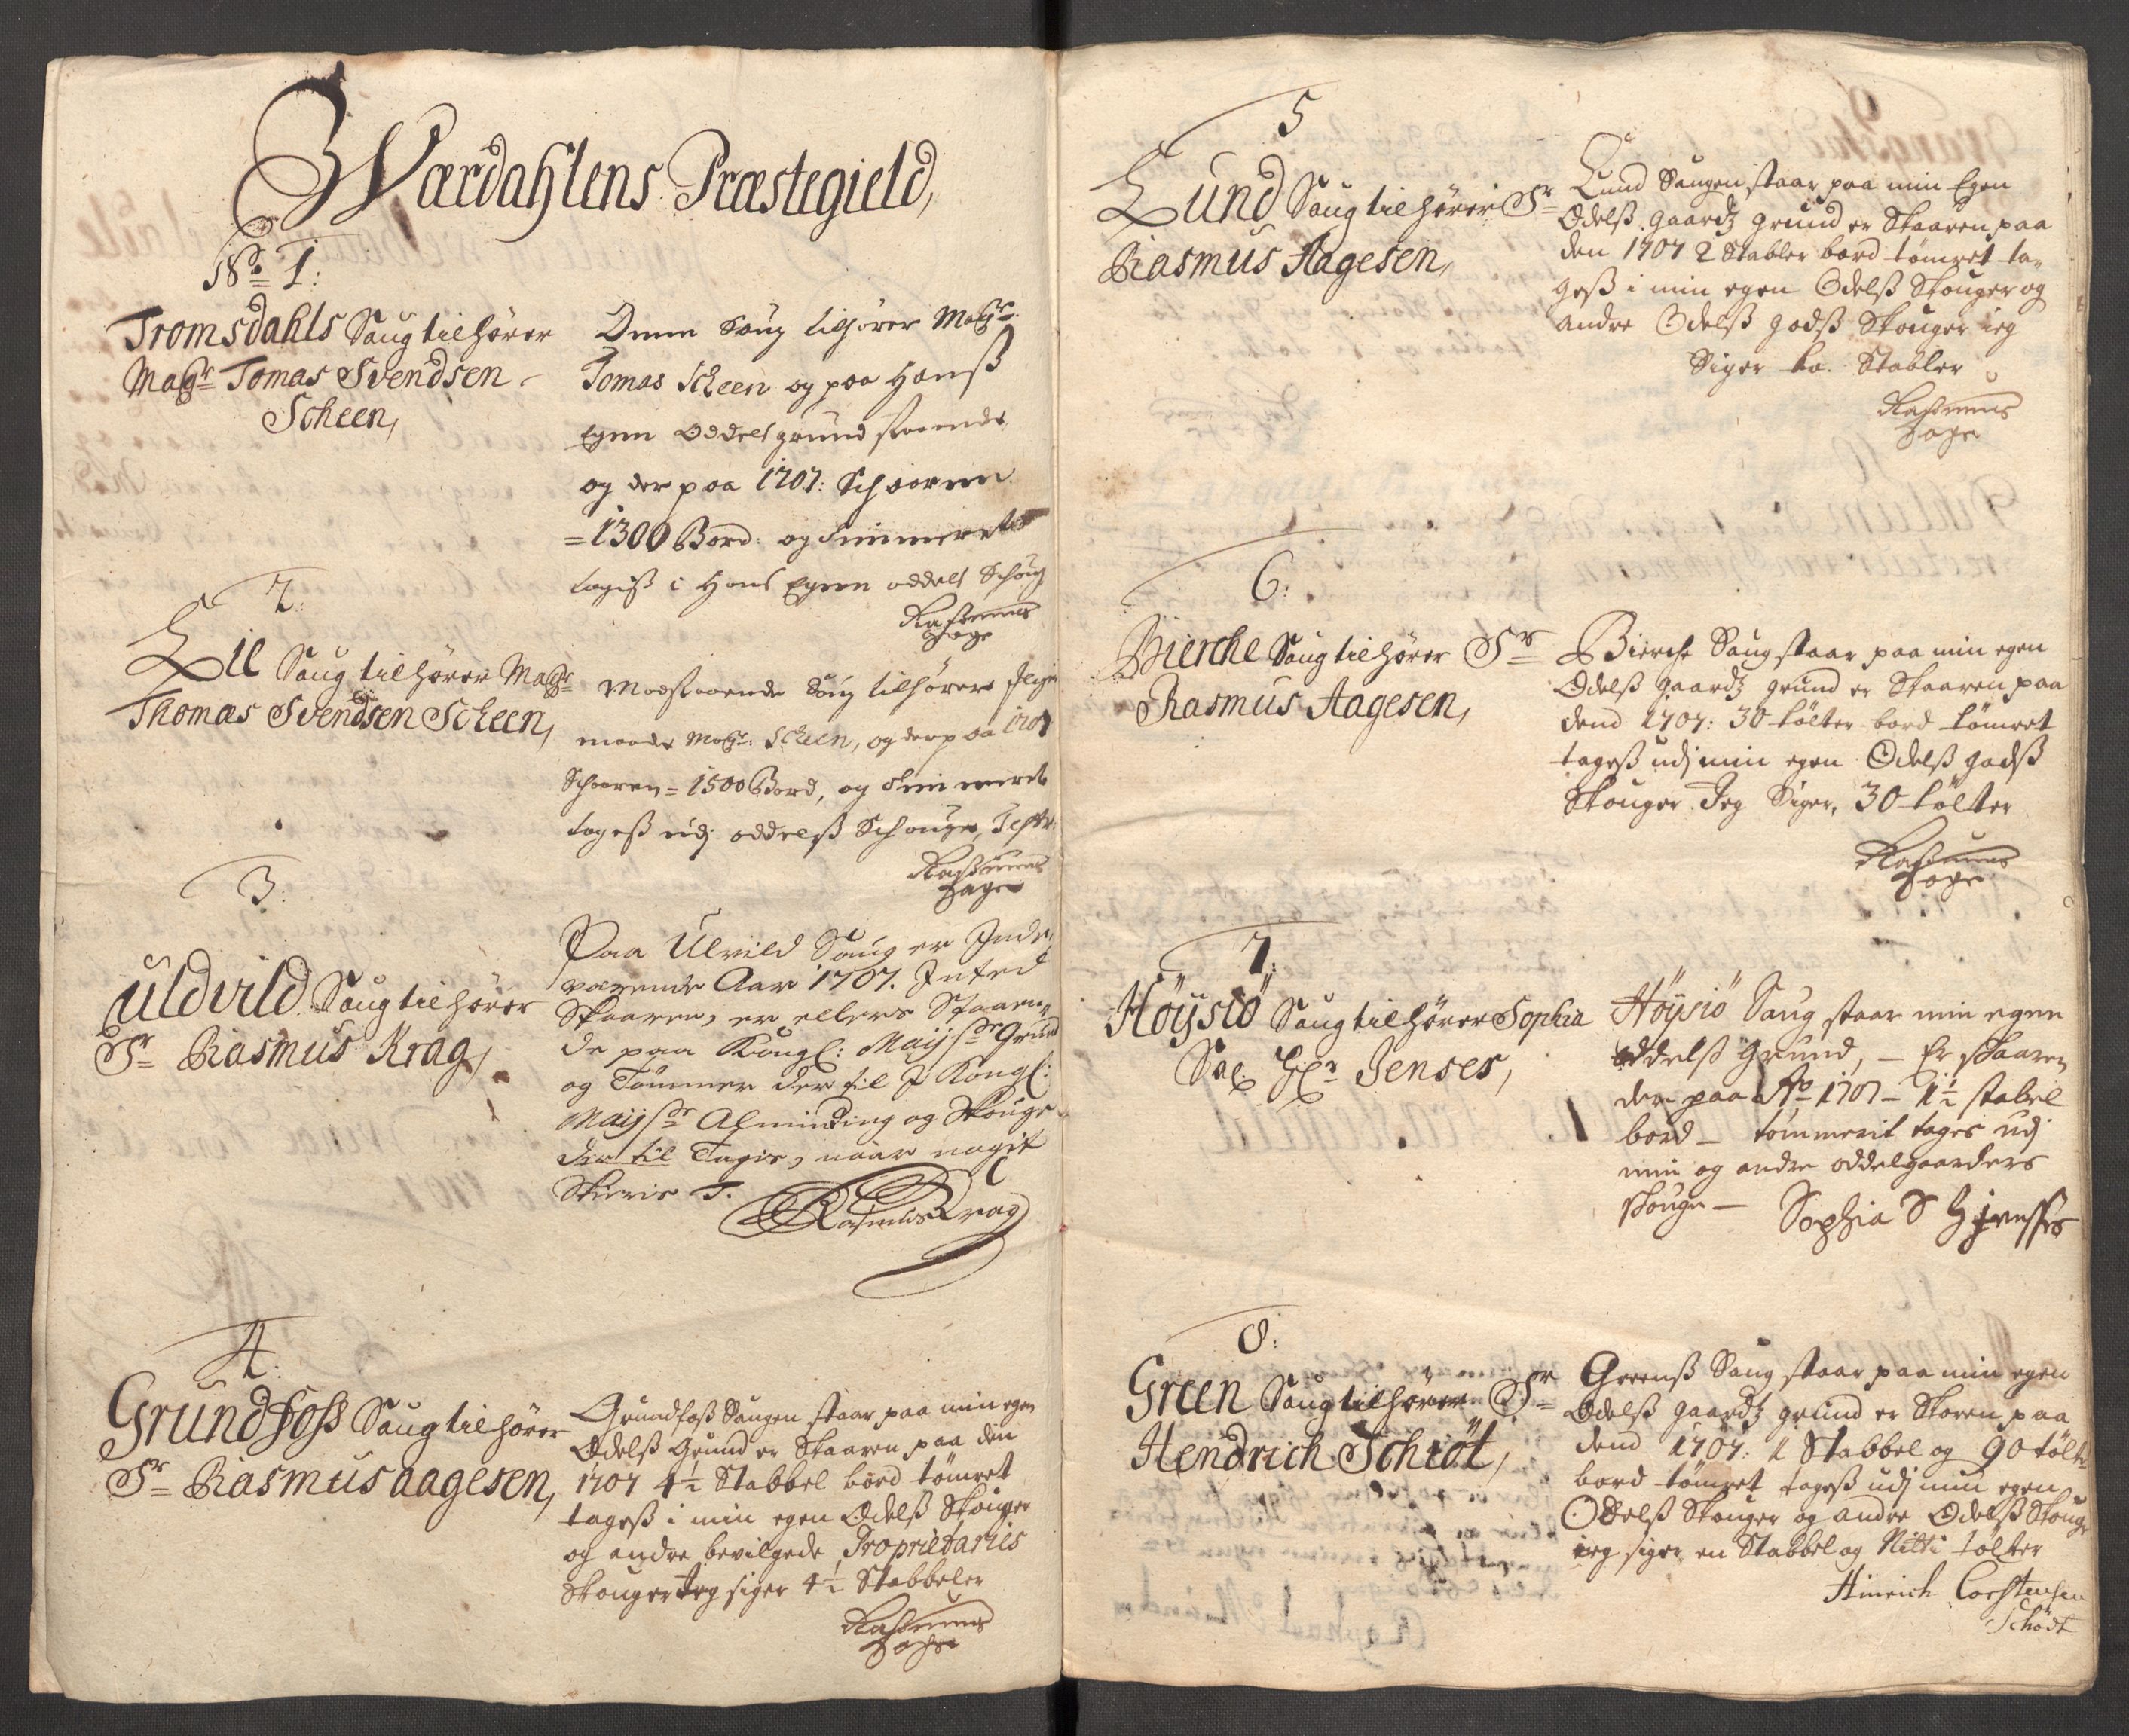 Værdahlens Præstegield,
No 1:
Tromsdahls Saug tilhörer
Magr Tomas Svendsen
Scheen,
Denne Saug tilhörer Magr
Tomas Scheen og paa Hanß
Egen Oddels grund staaende,
og der paa 1707: Schaaren
=1300 Bord: og Timmeret
tagiß i Hans Egen oddels Schoug
Raßmus
Hage
2:
Eil Saug tilhörer Magr
Thomas Svendsen Scheen,
Modstaaende Saug tilhörer
maade Magr: Scheen, og der paa 1707
Schaaren = 1500 Bord, og Timmeret
tageß udj oddelß Schouge,
Raßmus
Hage
3:
Uldvild Saug tilhörer
Sr Rasmus Krag,
Paa Ulvild Saug er Inde-
værende Aar 1707. Inted
Skaaren, er ellers Staaen-
de paa Kongl: Mayst Grund
og Tømmer der til J Kongl:
Mayst Alminding og Skouge
der til Tagis, naar nogit
Skieris
Rasmus Krag
4:
Grundfoss Saug tilhörer
Sr Rasmus aagesen,
Grundfoß Saugen staar paa min egen
Odelß Grund er Skaaren paa den
1707 4½ Stabbel bord tømret
tageß i min egen Odelß Skouger
og andre bevilgede Proprietaries
Skouger Jeg siger 4½ Stabbeler
Raßmus
Hage
5
Lund Saug tilhörer Sr
Rasmus Aagesen,
Lund Saugen staar paa min Egen
Odelß gaardz grund er Skaaren paa
den 1707 2 Stabler bord tømret ta-
geß i min egen Odelß Skouger og
andre Odelß godß Skouger ieg
Siger to Stabler
Raßmus
Hage
6:
Bierche Saug tilhörer Sr
Rasmus Aagesen,
Bierche Saug staar paa min egen
Odelß gaardz grund er Skaaren paa
dend 1707: 30 tölter bord tömret
tageß udj min egen Odelß godß
Skouger. Jeg Siger, 30 tölter
Raßmus
Hage
7:
Höysiö Saug tilhörer Sophia
Sal. Hr Jenses,
Höysiö Saug staar min egen
oddelß Grund, - Er skaaren
der paa Ao 1707 - 1½ stabel
bord - tömmerit tages udj
min og andre oddelgaarders
skouge - Sophia S H Jensses
8:
Green Saug tilhörer Sr
Hendrich Schiöt,
Greenß Saug staar paa min egen
Odelß gaardz grund er Skoren paa
dend 1707: 1 Stabbel og 90 tölter
bord tömret tageß udj min egen
Odelß Skouger og andre Odelß Skouge
ieg siger en Stabbel og Nitti tölter
Hinrich Corstensen
Schödt